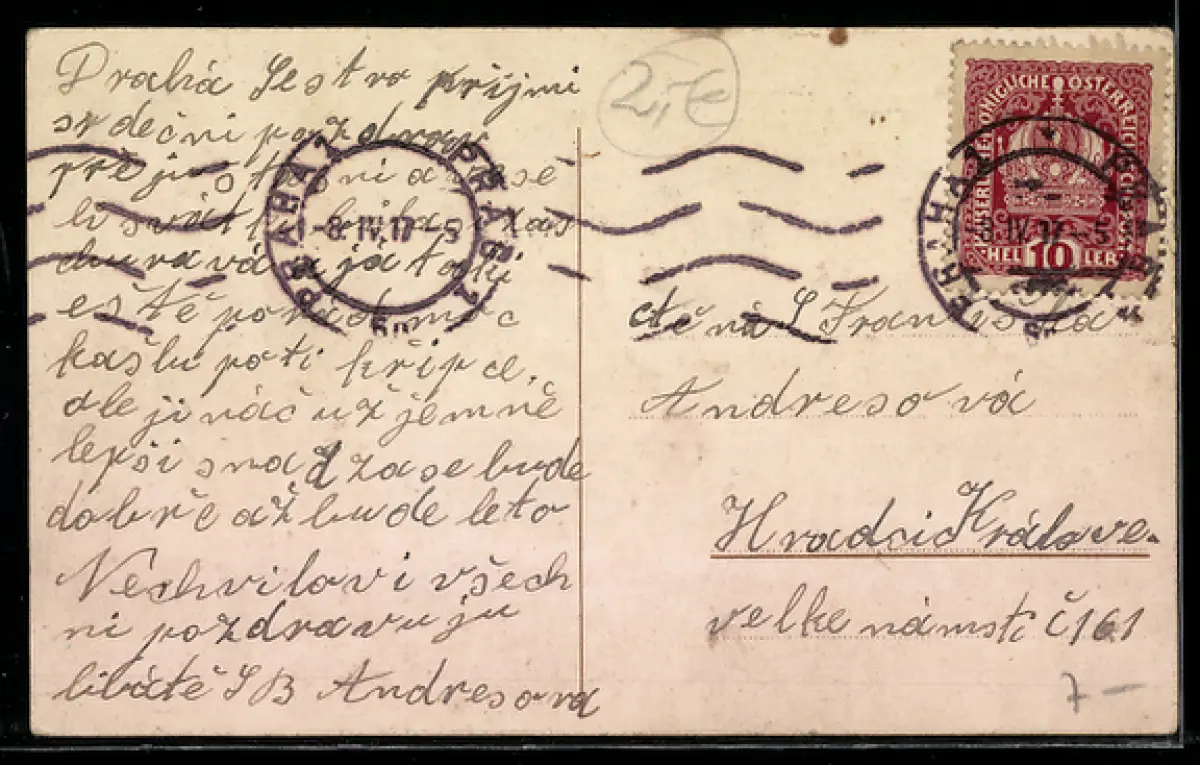 Drahá Sestro přijmi
srdečni pozdrav
přeju štastni a vesě
li svátki
zdurava a já toki
eště pořád moc
kašlu poti křipce,
ale ji náč už je mně
lepši snad zase bude
dobrře až bude leto
Nechvilovi všech
ni pozdravuju
libátě S B Andresova
2,-€
PRAHA 1
PRAG 1
-8.IV.17-5
KAISERLICHE KÖNIGLICHE ÖSTERREICHISCHE
8.IV.17-5
HELLER
10
ctěná S Františka
Andresová
Hradci Králove.
velke námsti č 161
7-